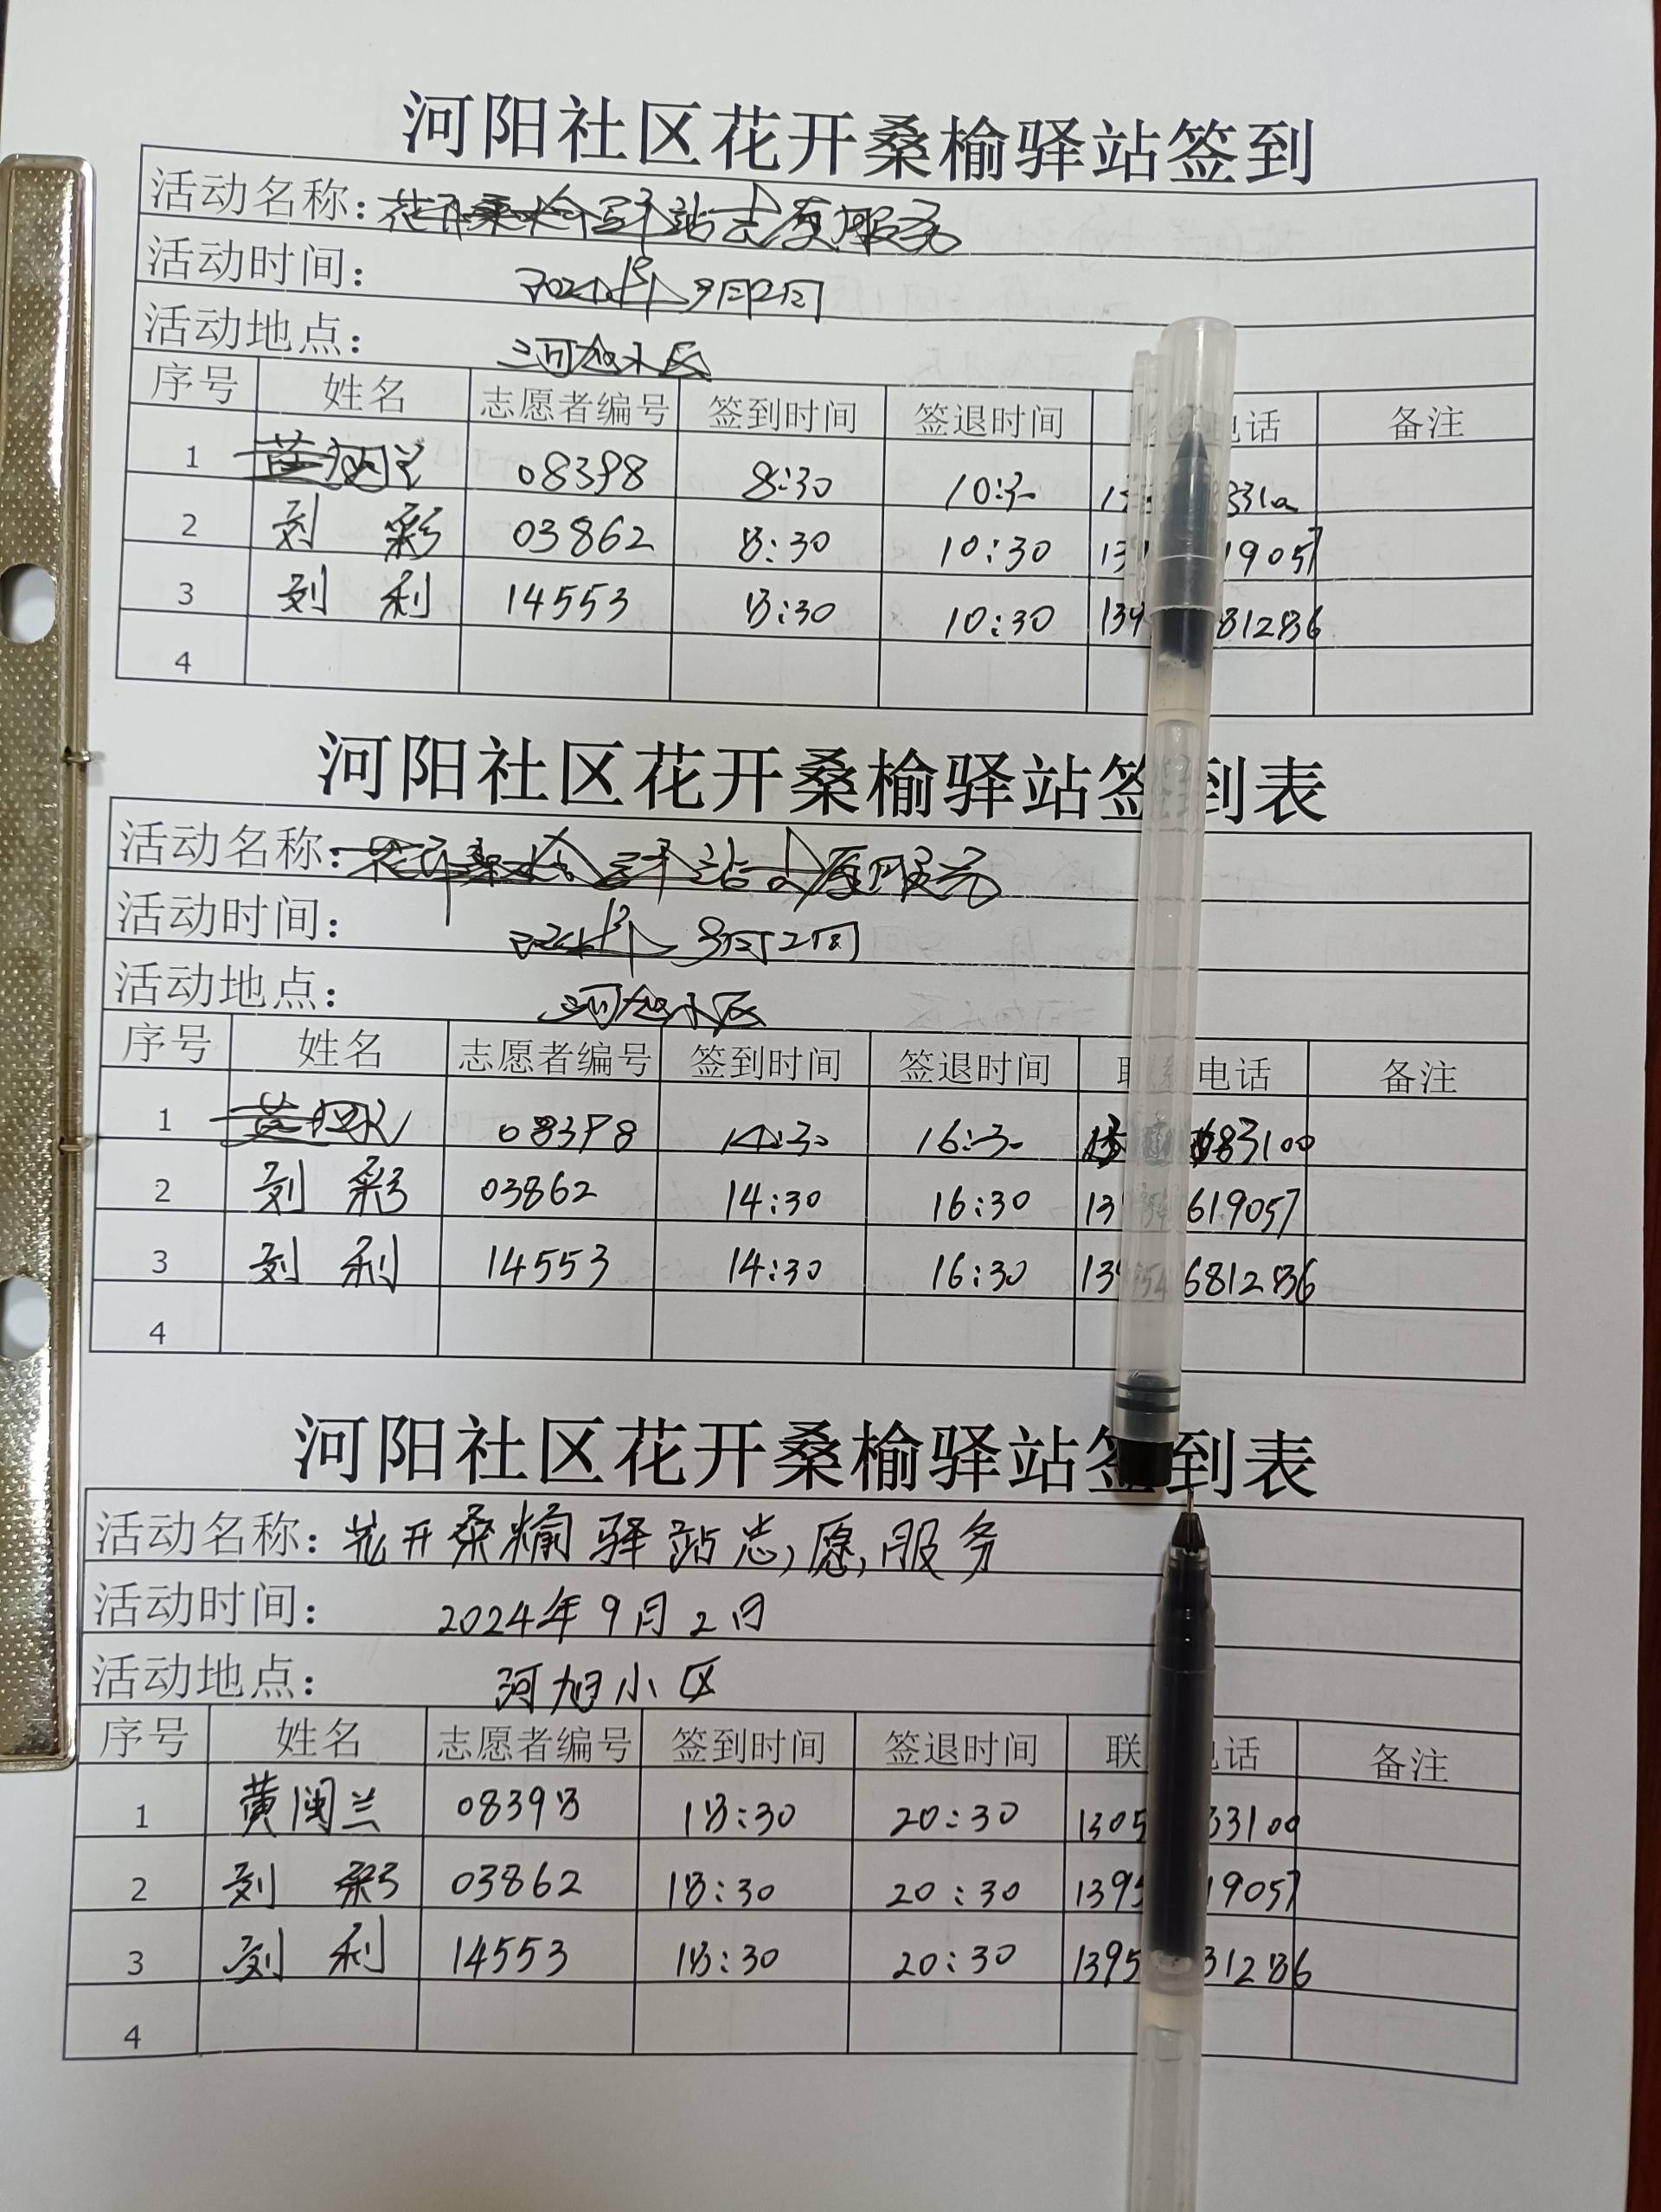 河阳社区花开桑榆驿站签到
活动名称：花开桑榆驿站志愿服务
活动时间： 2024年9月2日
活动地点： 河旭小区
序号 姓名 志愿者编号 签到时间 签退时间 电话 备注
1 08398 8:30 10:30
2 刘彩 03862 8:30 10:30 19057
3 刘利 14553 8:30 10:30 81286
4
河阳社区花开桑榆驿站签到表
活动名称：花开桑榆驿站志愿服务
活动时间： 2024年9月2日
活动地点： 河旭小区
序号 姓名 志愿者编号 签到时间 签退时间 联系电话 备注
1 08398 14:30 16:30 83100
2 刘彩 03862 14:30 16:30 13 619057
3 刘利 14553 14:30 16:30 681286
4
河阳社区花开桑榆驿站签到表
活动名称：花开桑榆驿站志愿服务
活动时间： 2024年9月2日
活动地点： 河旭小区
序号 姓名 志愿者编号 签到时间 签退时间 联 话 备注
1 黄闽兰 08398 18:30 20:30 1305 3100
2 刘彩 03862 18:30 20:30 1395 19057
3 刘利 14553 18:30 20:30 1395 1286
4